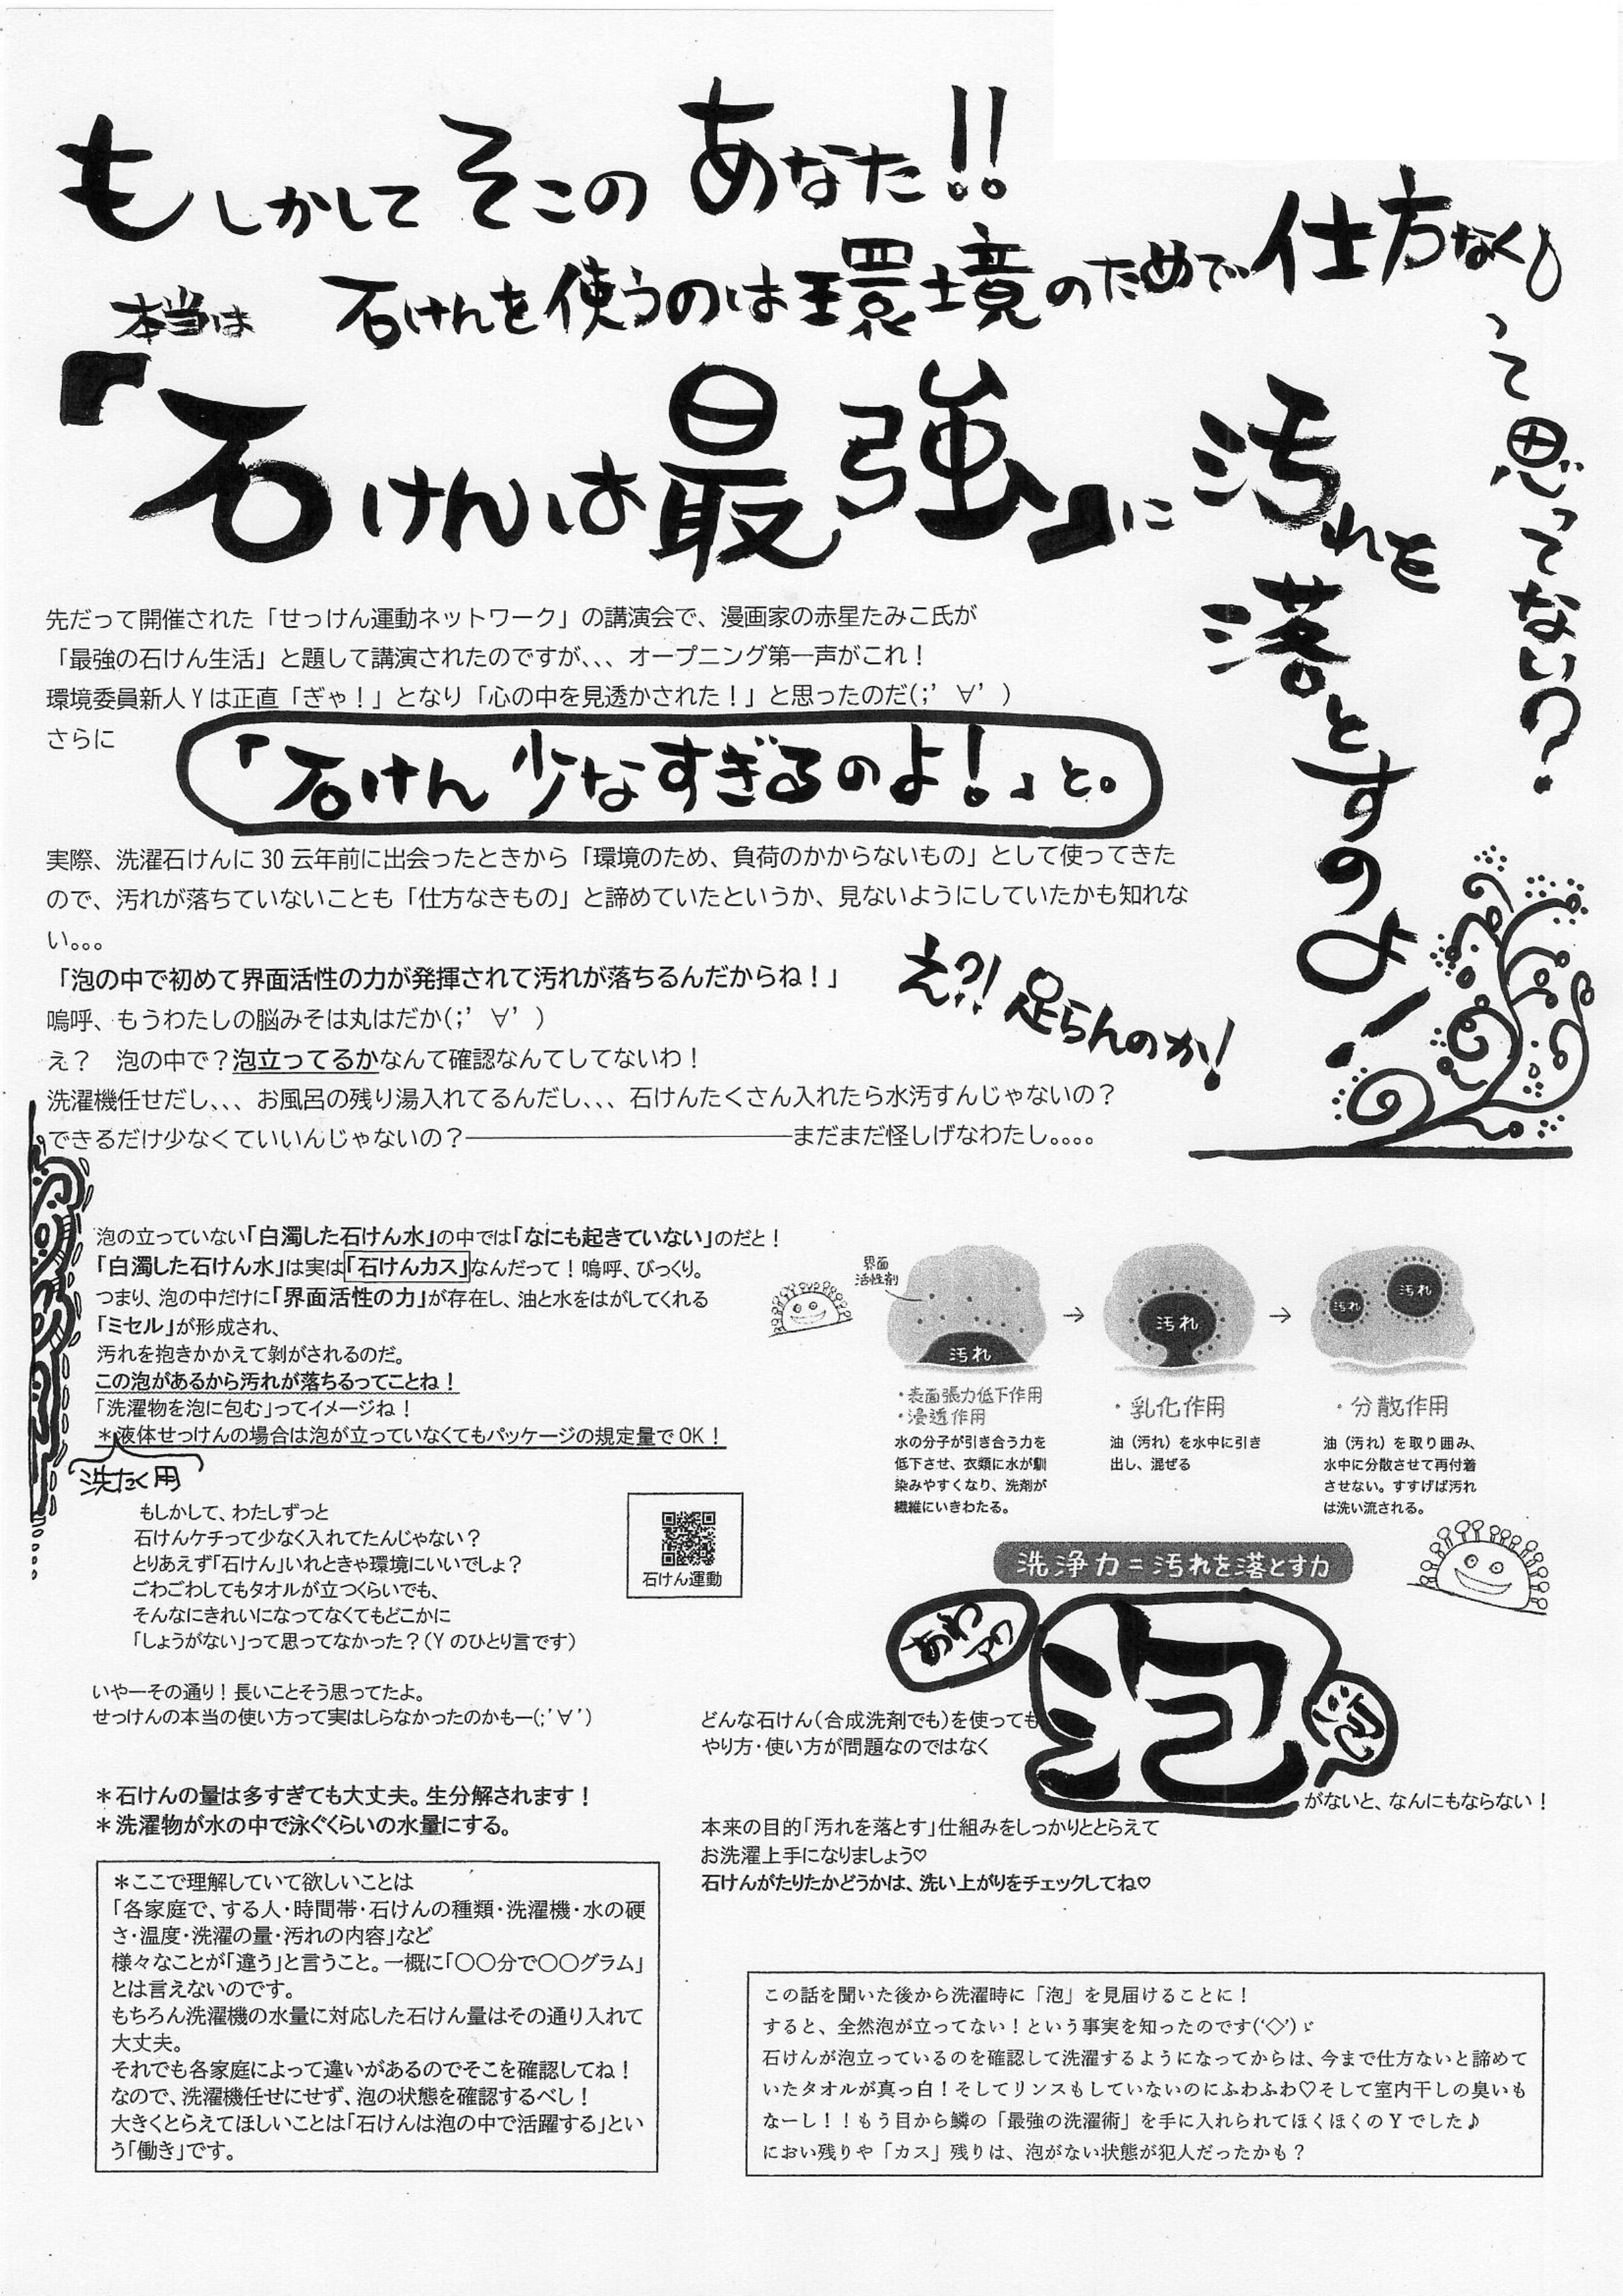 もしかしてそこのあなた!!
石けんを使うのは環境のためで仕方なく
って思ってない?
本当は
『石けんは最強』に汚れを
落とすのよ!
先だって開催された「せっけん運動ネットワーク」の講演会で、漫画家の赤星たみこ氏が
「最強の石けん生活」と題して講演されたのですが、、、オープニング第一声がこれ!
環境委員新人Yは正直「ぎゃ!」となり「心の中を見透かされた!」と思ったのだ(;’∀’)
さらに
「石けん少なすぎるのよ!」と。
実際、洗濯石けんに30云年前に出会ったときから「環境のため、負荷のかからないもの」として使ってきた
ので、汚れが落ちていないことも「仕方なきもの」と諦めていたというか、見ないようにしていたかも知れな
い。。。
「泡の中で初めて界面活性の力が発揮されて汚れが落ちるんだからね!」
嗚呼、もうわたしの脳みそは丸はだか(;’∀’)
え?!足らんのか!
え? 泡の中で?泡立ってるかなんて確認なんてしてないわ!
洗濯機任せだし、、、お風呂の残り湯入れてるんだし、、、石けんたくさん入れたら水汚すんじゃないの?
できるだけ少なくていいんじゃないの?――――――――――まだまだ怪しげなわたし。。。。
泡の立っていない「白濁した石けん水」の中では「なにも起きていない」のだと!
「白濁した石けん水」は実は「石けんカス」なんだって!嗚呼、びっくり。
つまり、泡の中だけに「界面活性の力」が存在し、油と水をはがしてくれる
「ミセル」が形成され、
汚れを抱きかかえて剝がされるのだ。
この泡があるから汚れが落ちるってことね!
「洗濯物を泡に包む」ってイメージね!
*液体せっけんの場合は泡が立っていなくてもパッケージの規定量でOK!
洗たく用
界面
活性剤
汚れ
→
汚れ
→
汚れ
汚れ
・表面張力低下作用
・浸透作用
水の分子が引き合う力を
低下させ、衣類に水が馴
染みやすくなり、洗剤が
繊維にいきわたる。
・乳化作用
油(汚れ)を水中に引き
出し、混ぜる
・分散作用
油(汚れ)を取り囲み、
水中に分散させて再付着
させない。すすげば汚れ
は洗い流される。
もしかして、わたしずっと
石けんケチって少なく入れてたんじゃない?
とりあえず「石けん」いれときゃ環境にいいでしょ?
ごわごわしてもタオルが立つくらいでも、
そんなにきれいになってなくてもどこかに
「しょうがない」って思ってなかった?(Yのひとり言です)
石けん運動
洗浄力=汚れを落とす力
いやーその通り!長いことそう思ってたよ。
せっけんの本当の使い方って実はしらなかったのかもー(;’∀’)
*石けんの量は多すぎても大丈夫。生分解されます!
*洗濯物が水の中で泳ぐくらいの水量にする。
*ここで理解していて欲しいことは
「各家庭で、する人・時間帯・石けんの種類・洗濯機・水の硬
さ・温度・洗濯の量・汚れの内容」など
様々なことが「違う」と言うこと。一概に「〇〇分で〇〇グラム」
とは言えないのです。
もちろん洗濯機の水量に対応した石けん量はその通り入れて
大丈夫。
それでも各家庭によって違いがあるのでそこを確認してね!
なので、洗濯機任せにせず、泡の状態を確認するべし!
大きくとらえてほしいことは「石けんは泡の中で活躍する」とい
う「働き」です。
どんな石けん(合成洗剤でも)を使っても
やり方・使い方が問題なのではなく
あわ
アワ
泡
泡
がないと、なんにもならない!
本来の目的「汚れを落とす」仕組みをしっかりととらえて
お洗濯上手になりましょう♡
石けんがたりたかどうかは、洗い上がりをチェックしてね♡
この話を聞いた後から洗濯時に「泡」を見届けることに!
すると、全然泡が立ってない!という事実を知ったのです(‘◇’)ゞ
石けんが泡立っているのを確認して洗濯するようになってからは、今まで仕方ないと諦めて
いたタオルが真っ白!そしてリンスもしていないのにふわふわ♡そして室内干しの臭いも
なーし!!もう目から鱗の「最強の洗濯術」を手に入れられてほくほくのYでした♪
におい残りや「カス」残りは、泡がない状態が犯人だったかも?